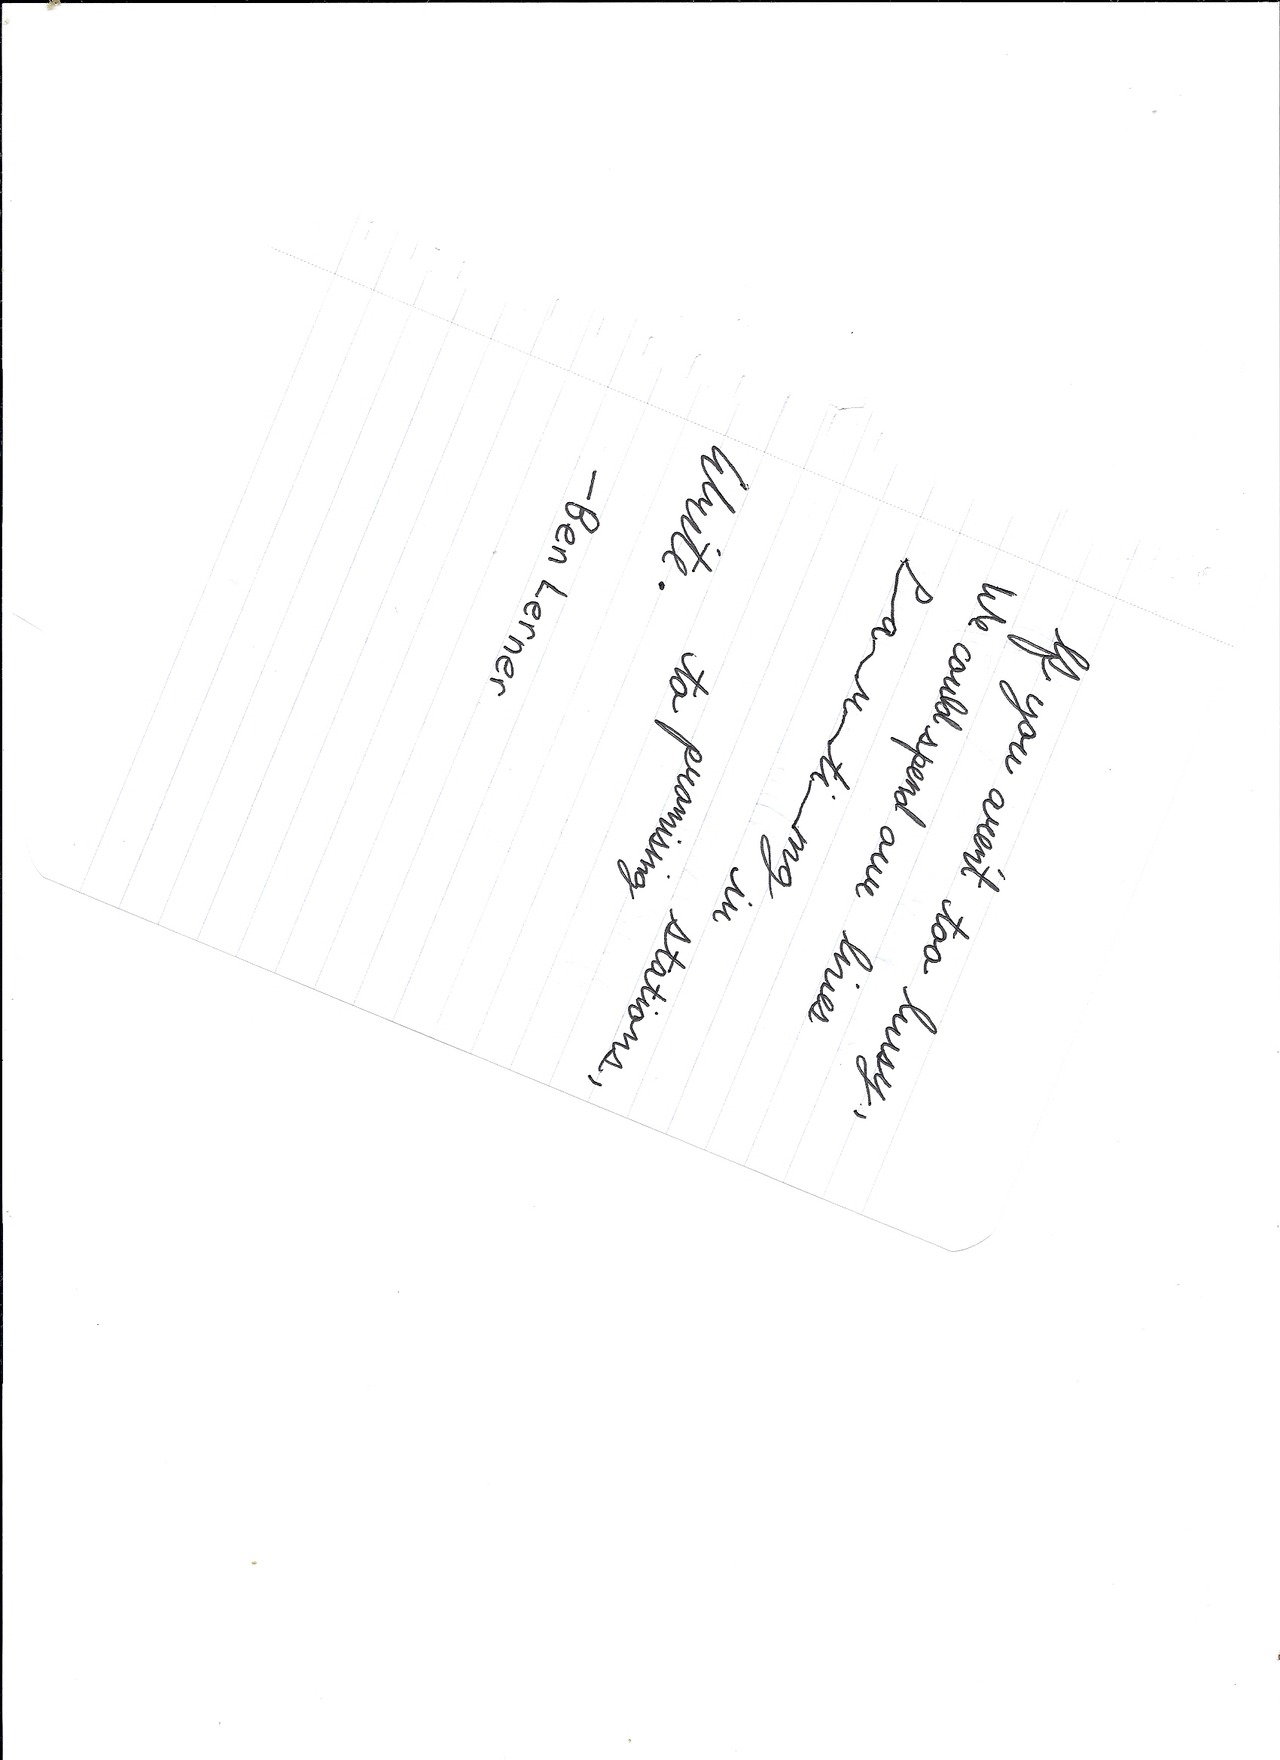 If you aren't too busy,
We could spend our lives
in
Write. to promising stations,
—Ben Lerner